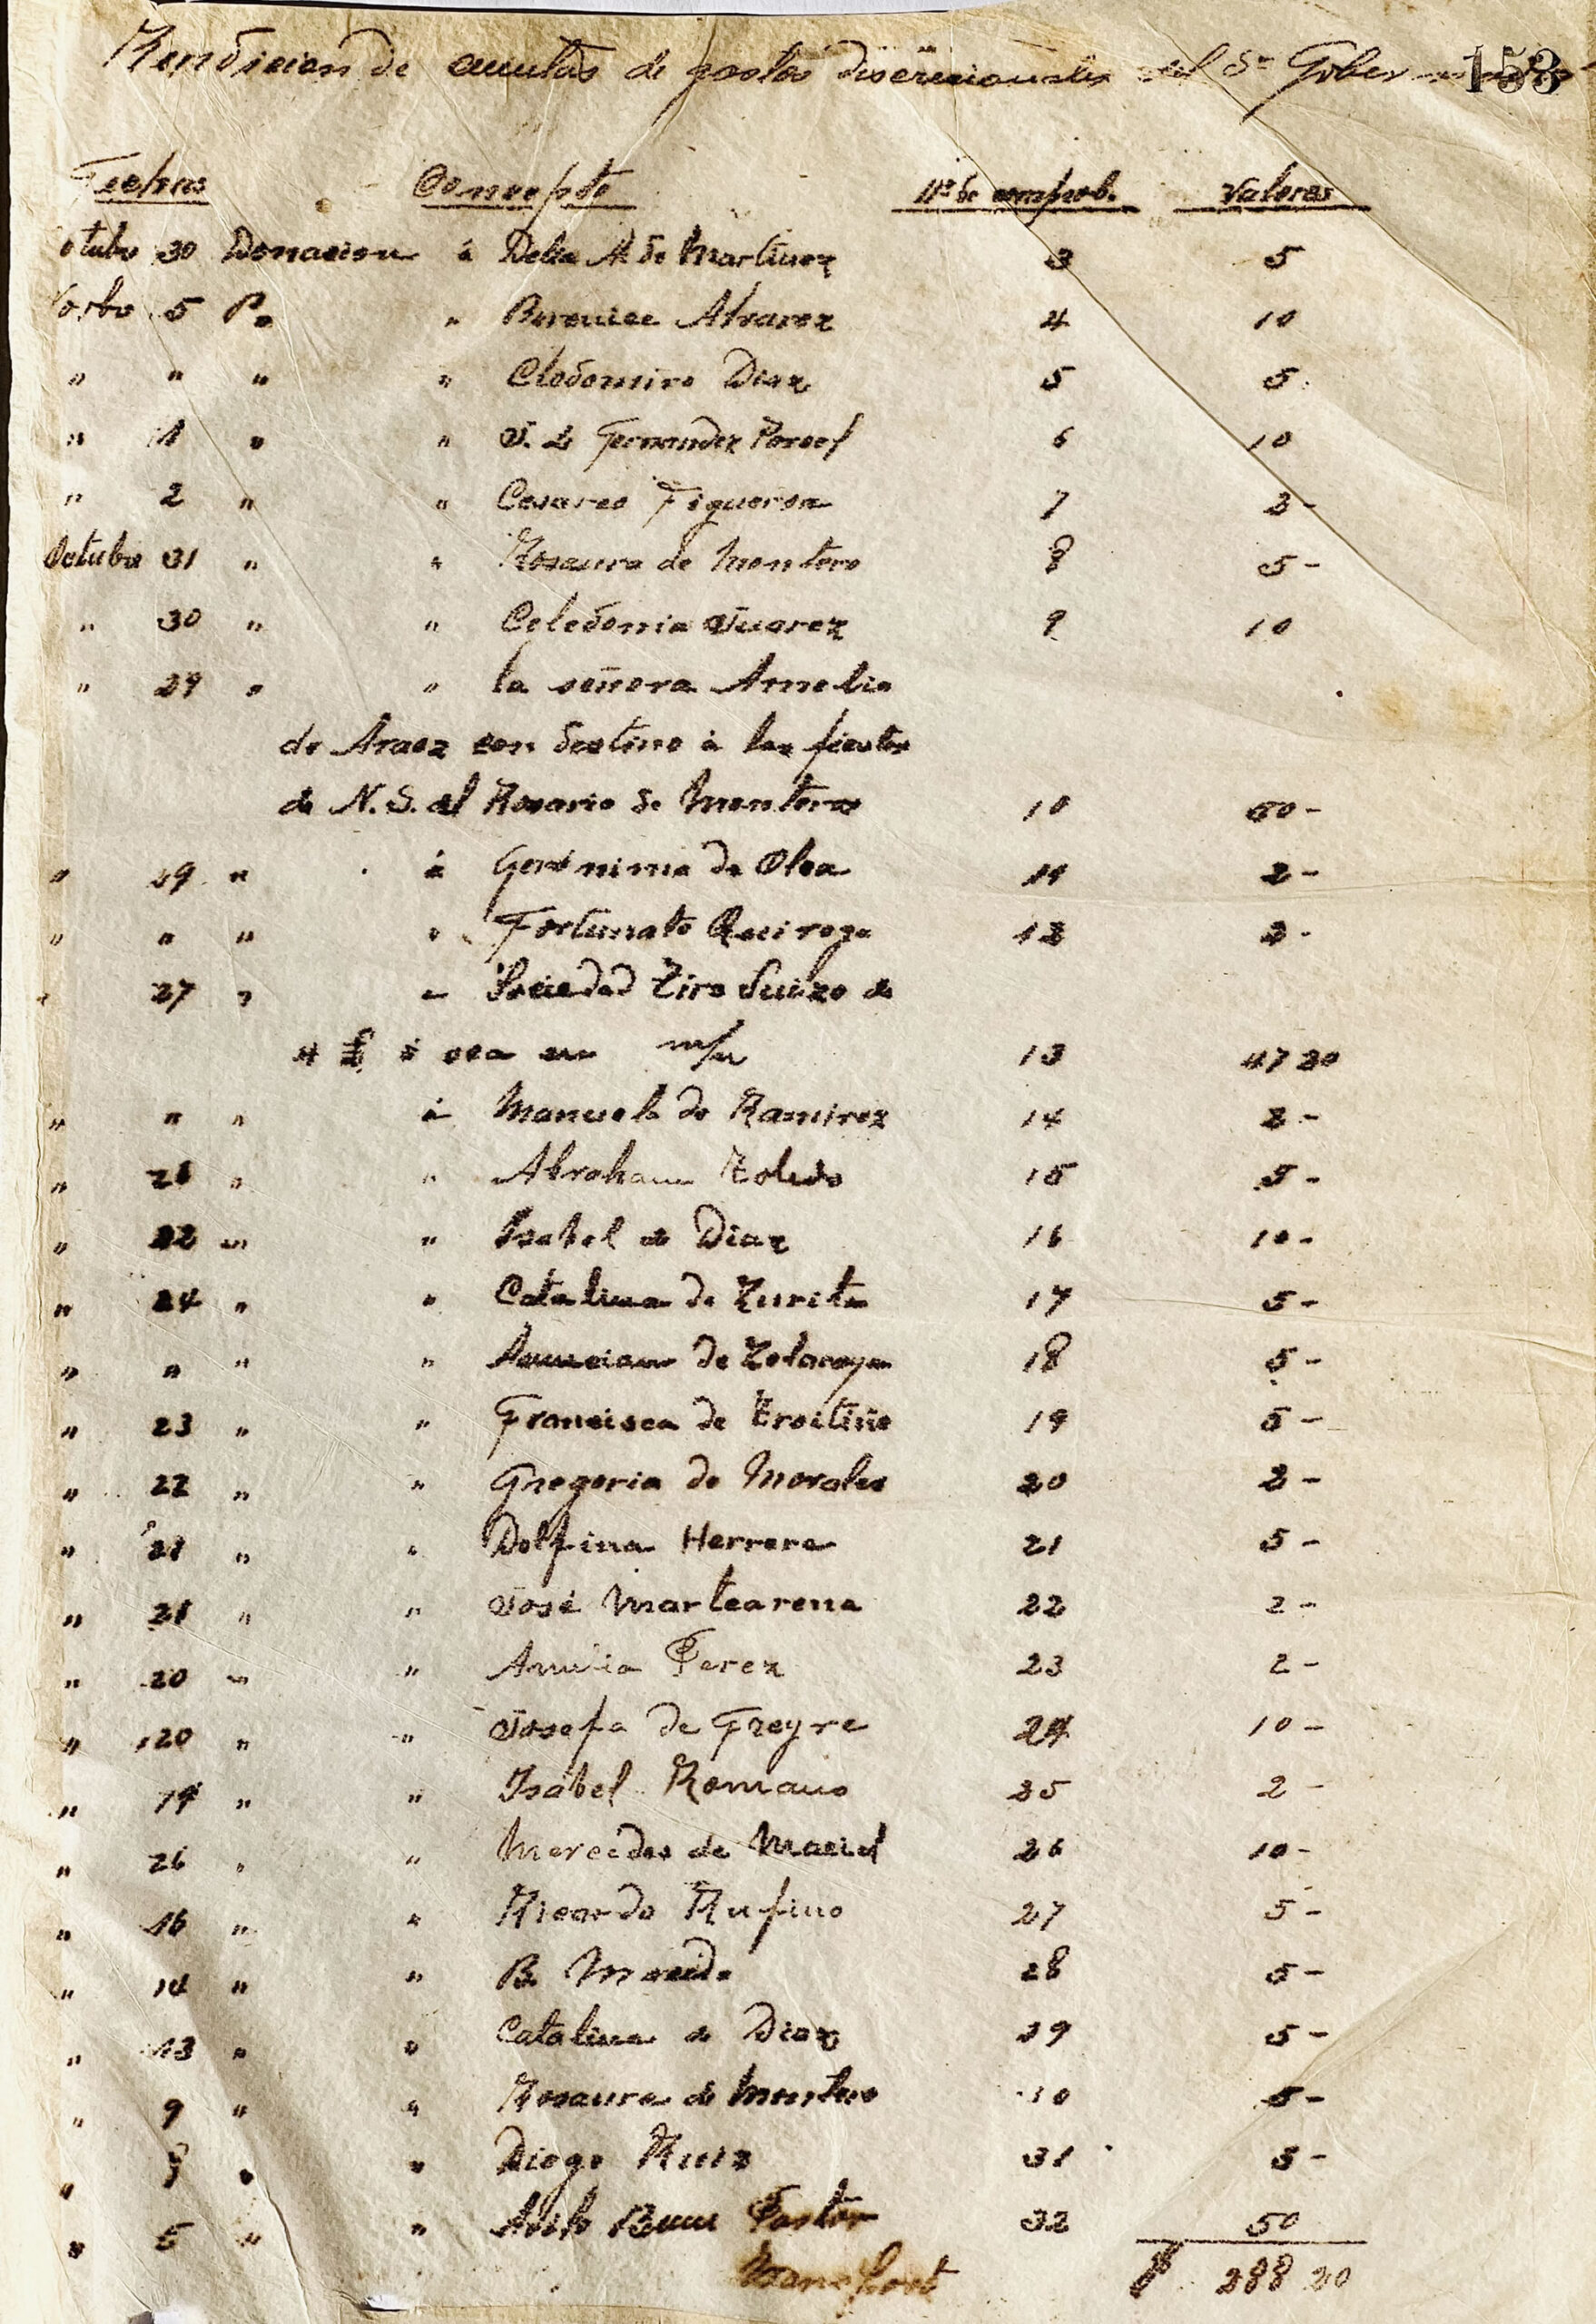 Rendicion de cuentas de gastos discrecionales del Sr Gobernador
153
Fechas Concepto Nº de comprob. Valores
Otubre 30 Donacion á Delia M. de Martinez 3 5
Novbre 5 Pº " Berenice Alvarez 4 10
" " " " Clodomiro Diaz 5 5
" 1 " " J. L. Fernandez Porcel 6 10
" 2 " " Cesareo Figueroa 7 2 -
Octubre 31 " " Rosaura de Montero 8 5 -
" 30 " " Celedonia Juarez 9 10
" 29 " " la señora Amelia
de Araoz con destino á las fiestas
de N. S. del Rosario de Monteros 10 50 -
" 29 " á Gerónima de Olea 11 2 -
" " " " Fortunato Quiroga 12 2 -
" 27 " " Sociedad Tiro Suizo de
4 £ ó sea en m/n 13 47 20
" " " á Manuela de Ramirez 14 2 -
" 26 " " Abraham Toledo 15 5 -
" 22 " " Isabel de Diaz 16 10 -
" 24 " " Catalina de Zurita 17 5 -
" " " " de 18 5 -
" 23 " " Francisca de Troitiño 19 5 -
" 22 " " Gregoria de Morales 20 2 -
" 21 " " Delfina Herrera 21 5 -
" 21 " " José Martearena 22 2 -
" 20 " " Amelia Perez 23 2 -
" 20 " " Josefa de Freyre 24 10 -
" 19 " " Isabel Romano 25 2 -
" 26 " " Mercedes de Maciel 26 10 -
" 16 " " Ricardo Rufino 27 5 -
" 14 " " B. 28 5 -
" 13 " " Catalina de Diaz 29 5 -
" 9 " " Rosaura de Montero 30 5 -
" 8 " " Diego Ruiz 31 5 -
" 5 " " Asilo Buen Pastor 32 50
Transport $ 288 20